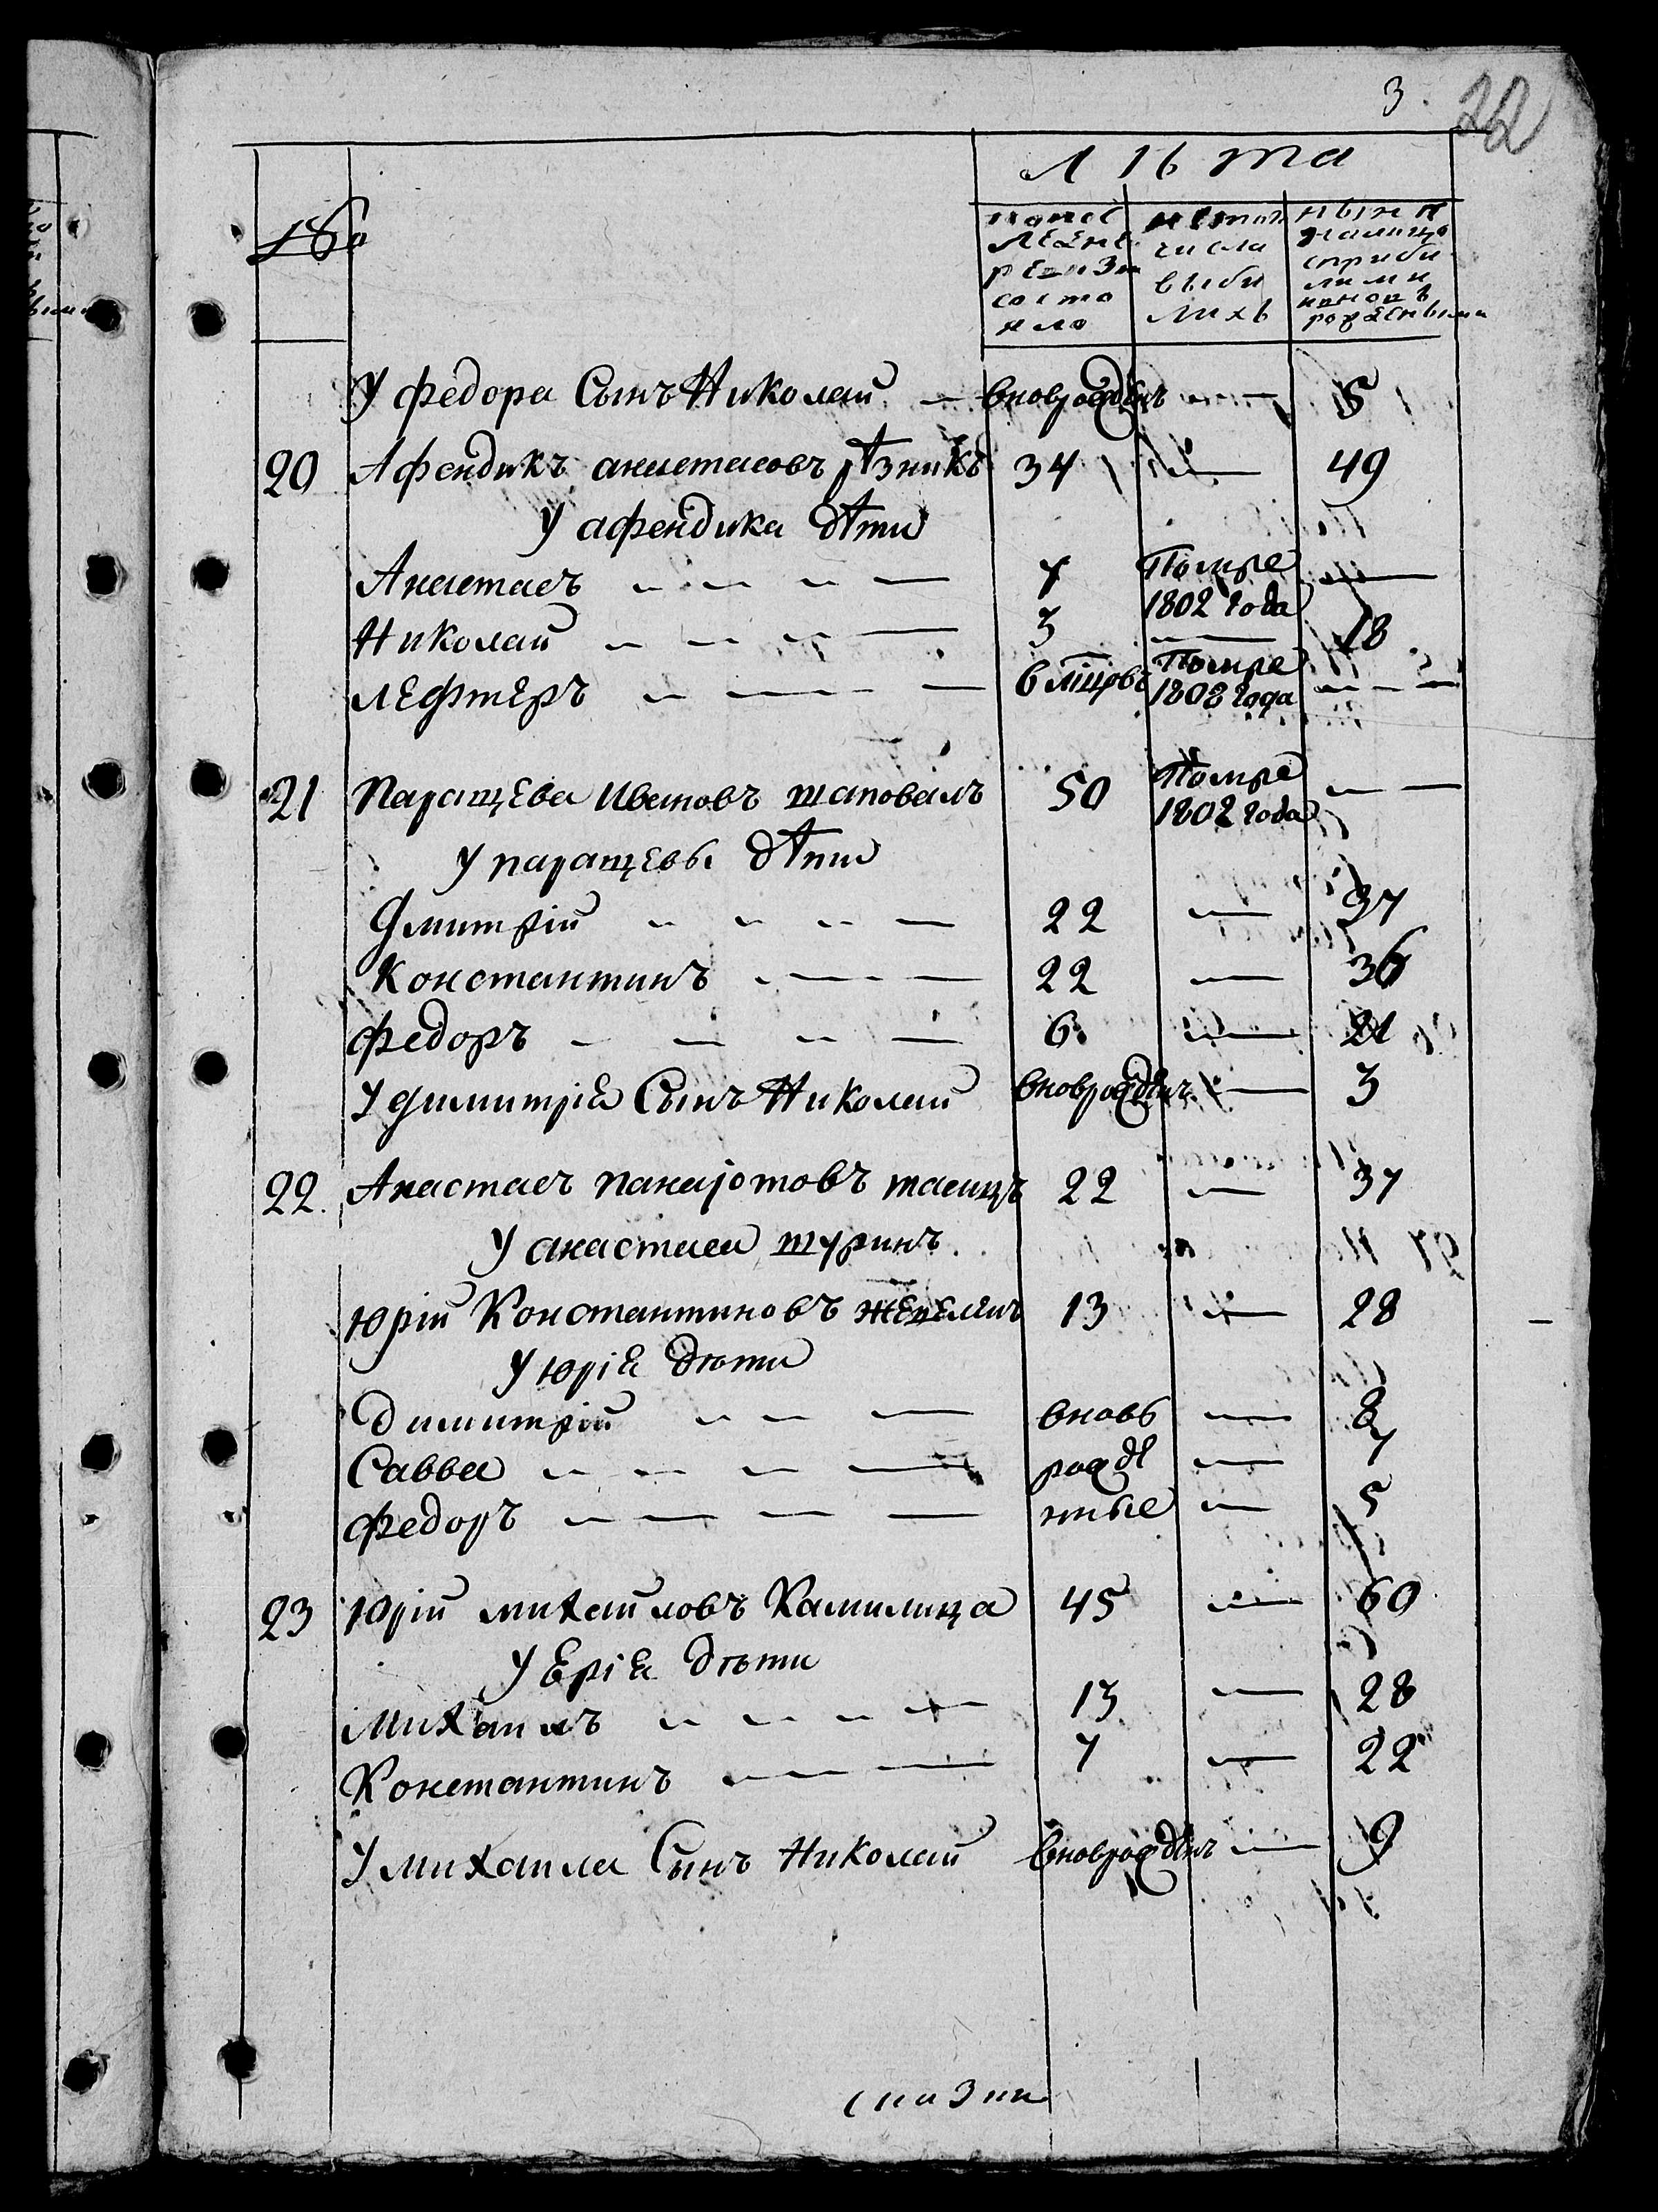 3. 22
№
Лѣта
по пос
ледне
ревизи
состо
яло
ис того
числа
выбы
лихъ
ныне
налицо
сприбы
лыми
ивновъ
рождеными
У федора Сынъ Николай — вновърожденъ — 5
20 Афендикъ анастасовъ рѣзникъ 34 — 49
У афендика дѣти
Анастасъ — 7 Помре 1802 года —
Николай — 3 — 18
лефтеръ — 6 мцовъ Помре 1808 года —
21 Паращева Ивановъ шаповалъ 50 Помре 1802 года —
У паращевы дѣти
Дмитрій — 22 — 37
Константинъ — 22 — 36
федоръ — 6 — 21
У димитрія Сынъ Николай вновърожденъ — 3
22. Анастасъ панаіотовъ 22 — 37
У анастаса шуринъ
Юрій Константиновъ 13 — 28
У юрія дѣти
Димитрій — вновь — 8
Савва — рожде — 7
федоръ — нные — 5
23 Юрій михайловъ Камилица 45 — 60
У Ерія дѣти
михаилъ — 13 — 28
Константинъ — 7 — 22
У михаила Сынъ Николай вновърожденъ — 9